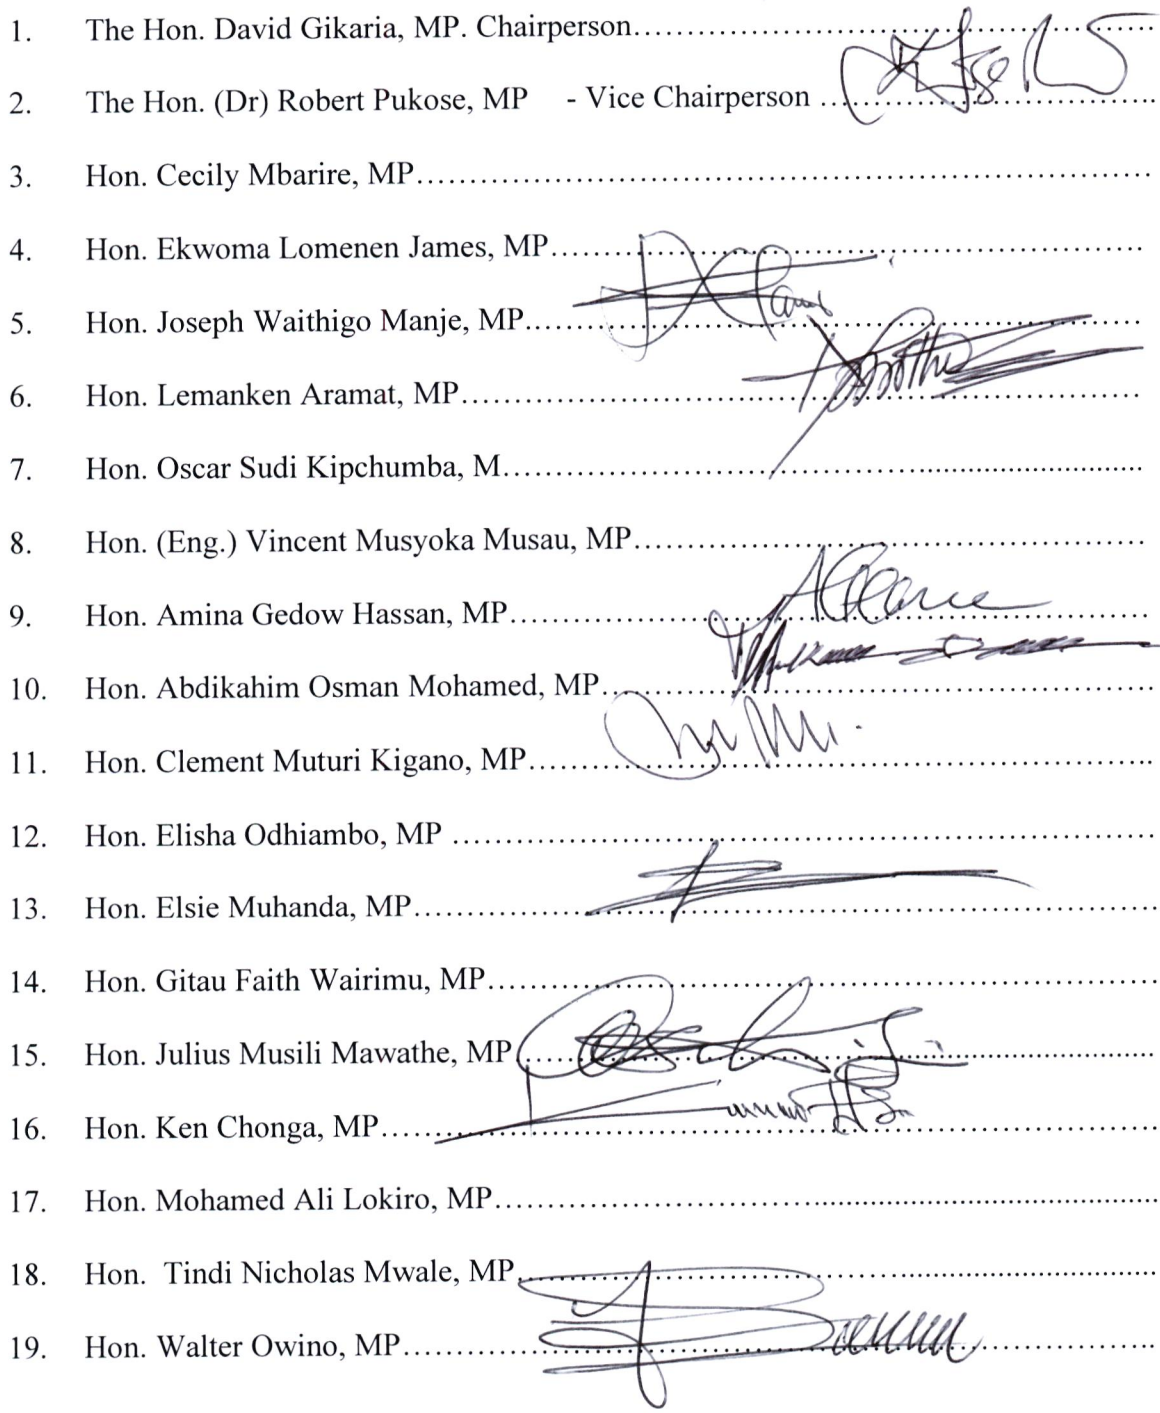 1. The Hon. David Gikaria, MP. Chairperson........................................................
2. The Hon. (Dr) Robert Pukose, MP - Vice Chairperson ...................................
3. Hon. Cecily Mbarire, MP................................................................................
4. Hon. Ekwoma Lomenen James, MP................................................................
5. Hon. Joseph Waithigo Manje, MP..................................................................
6. Hon. Lemanken Aramat, MP..........................................................................
7. Hon. Oscar Sudi Kipchumba, M.....................................................................
8. Hon. (Eng.) Vincent Musyoka Musau, MP......................................................
9. Hon. Amina Gedow Hassan, MP....................................................................
10. Hon. Abdikahim Osman Mohamed, MP..........................................................
11. Hon. Clement Muturi Kigano, MP..................................................................
12. Hon. Elisha Odhiambo, MP ...........................................................................
13. Hon. Elsie Muhanda, MP...............................................................................
14. Hon. Gitau Faith Wairimu, MP.......................................................................
15. Hon. Julius Musili Mawathe, MP....................................................................
16. Hon. Ken Chonga, MP...................................................................................
17. Hon. Mohamed Ali Lokiro, MP......................................................................
18. Hon. Tindi Nicholas Mwale, MP.....................................................................
19. Hon. Walter Owino, MP.................................................................................